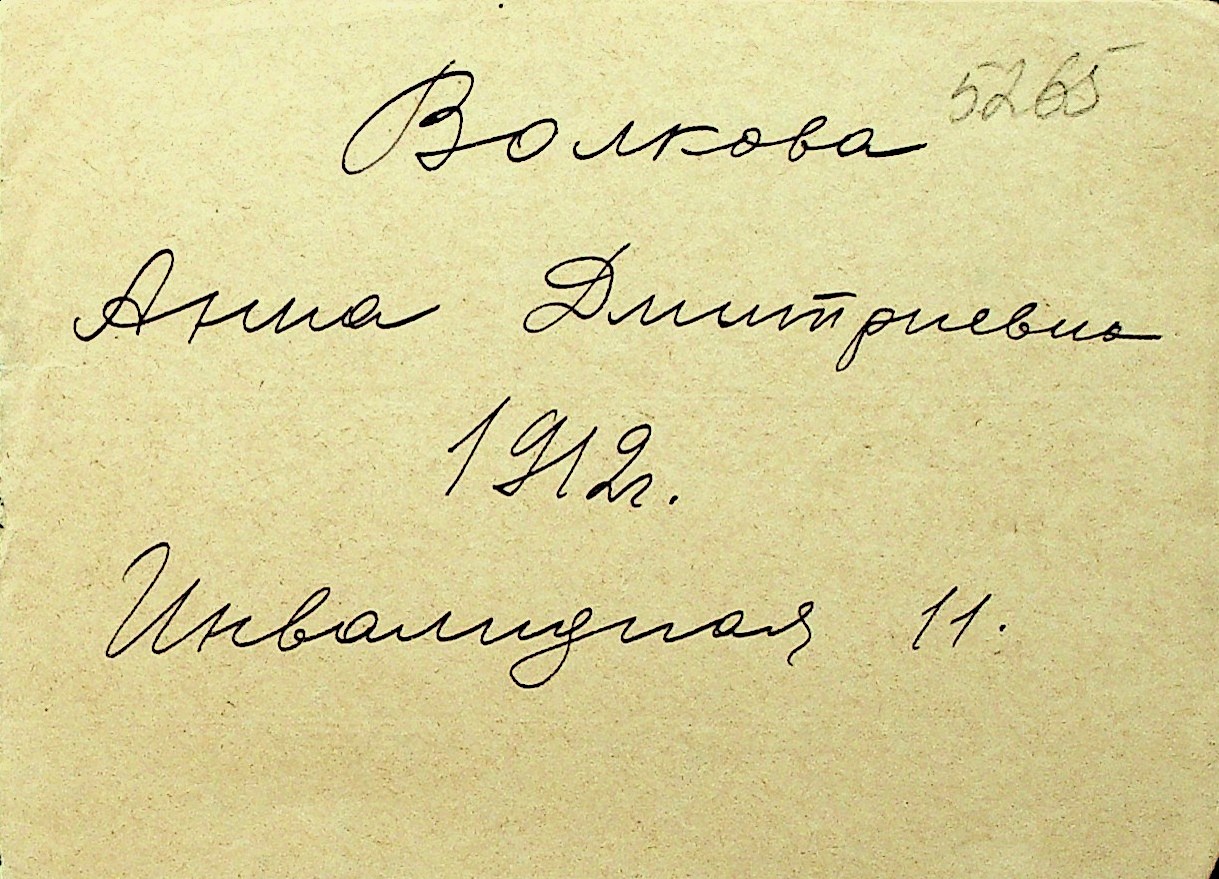 5265
Волкова
Анна Дмитриевна
1912г.
Инвалидная 11.